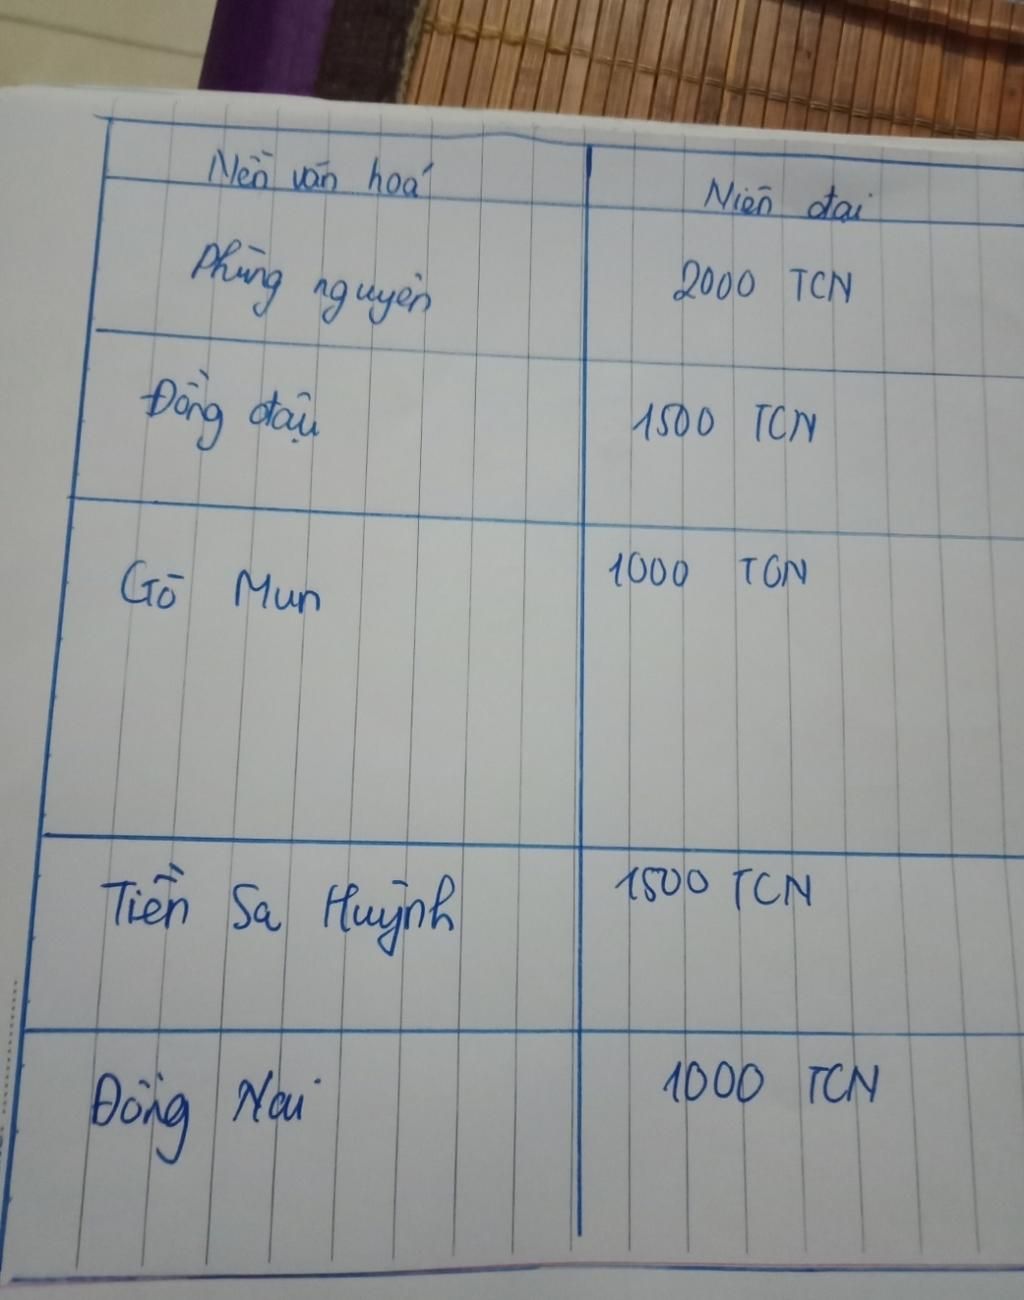 Nền văn hoá
Niên đại
Phùng nguyên
2000 TCN
Đồng đậu
1500 TCN
Gò Mun
1000 TCN
Tiền Sa Huỳnh
1500 TCN
Đồng Nai
1000 TCN